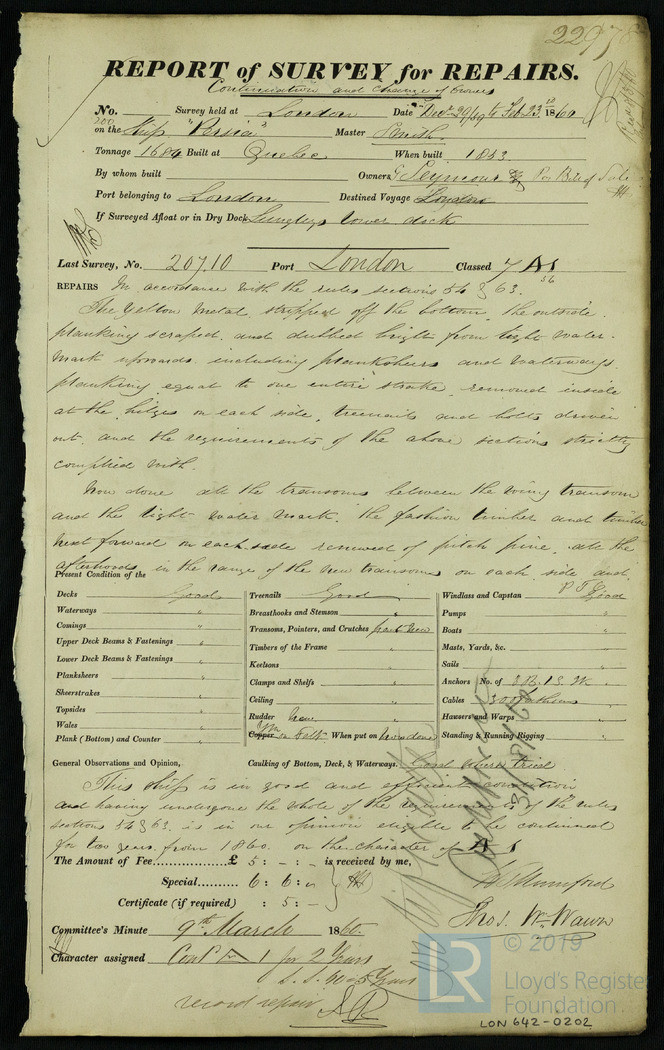 22978
REPORT of SURVEY for REPAIRS.
Continuation and change of Owners
No. Survey held at London Date Decr 29/59 to Feb 23rd 1860
on the Ship "Persia" Master Smith
Tonnage 1684 Built at Quebec When built 1853
By whom built Owners G Seymour Pr Bill of Sale
Port belonging to London Destined Voyage London
If Surveyed Afloat or in Dry Dock Langleys lower dock
Last Survey, No. 20710 Port London Classed 7 A 1
56
REPAIRS In accordance with the rules sections 54 & 63.
The Yellow Metal, stripped off the bottom, the outside
planking scraped and dubbed bright from light water
mark upwards including planksheers and waterways.
planking equal to one entire strake removed inside
at the bilges on each side, treenails and bolts driven
out. and the requirements of the above sections strictly
complied with.
Now done all the transoms between the wing transom
and the light water mark. the fashion timber and timber
next forward on each side renewed of pitch pine. all the
afterhoods in the range of the new transoms on each side and
P T O
Present Condition of the
Decks Good Treenails Good Windlass and Capstan Good
Waterways " Breasthooks and Stemson " Pumps "
Comings " Transoms, Pointers, and Crutches part new Boats "
Upper Deck Beams & Fastenings " Timbers of the Frame " Masts, Yards, &c. "
Lower Deck Beams & Fastenings " Keelsons " Sails "
Planksheers " Clamps and Shelfs " Anchors No. of 3 B. 1 S. 1 K.
Sheerstrakes " Ceiling " Cables 300 fathoms
Topsides " Rudder New Hawsers and Warps "
Wales " Copper YM on felt When put on now done Standing & Running Rigging "
Plank (Bottom) and Counter "
General Observations and Opinion, Caulking of Bottom, Deck, & Waterways. Good where tried
This ship is in good and efficient condition
and having undergone the whole of the requirements of the rules
sections 54 & 63 is in our opinion eligible to be continued
for two years from 1860. on the character of A 1
The Amount of Fee £ 5 : - : - is received by me,
Special 6 : 6 : "
Certificate (if required) : 5 : -
Thos. Wm Wawn
Committee's Minute 9th March 1860
Character assigned Contd A 1 for 2 Years
record repair
© 2019
LR
Lloyd's Register
Foundation
LON 642-0202